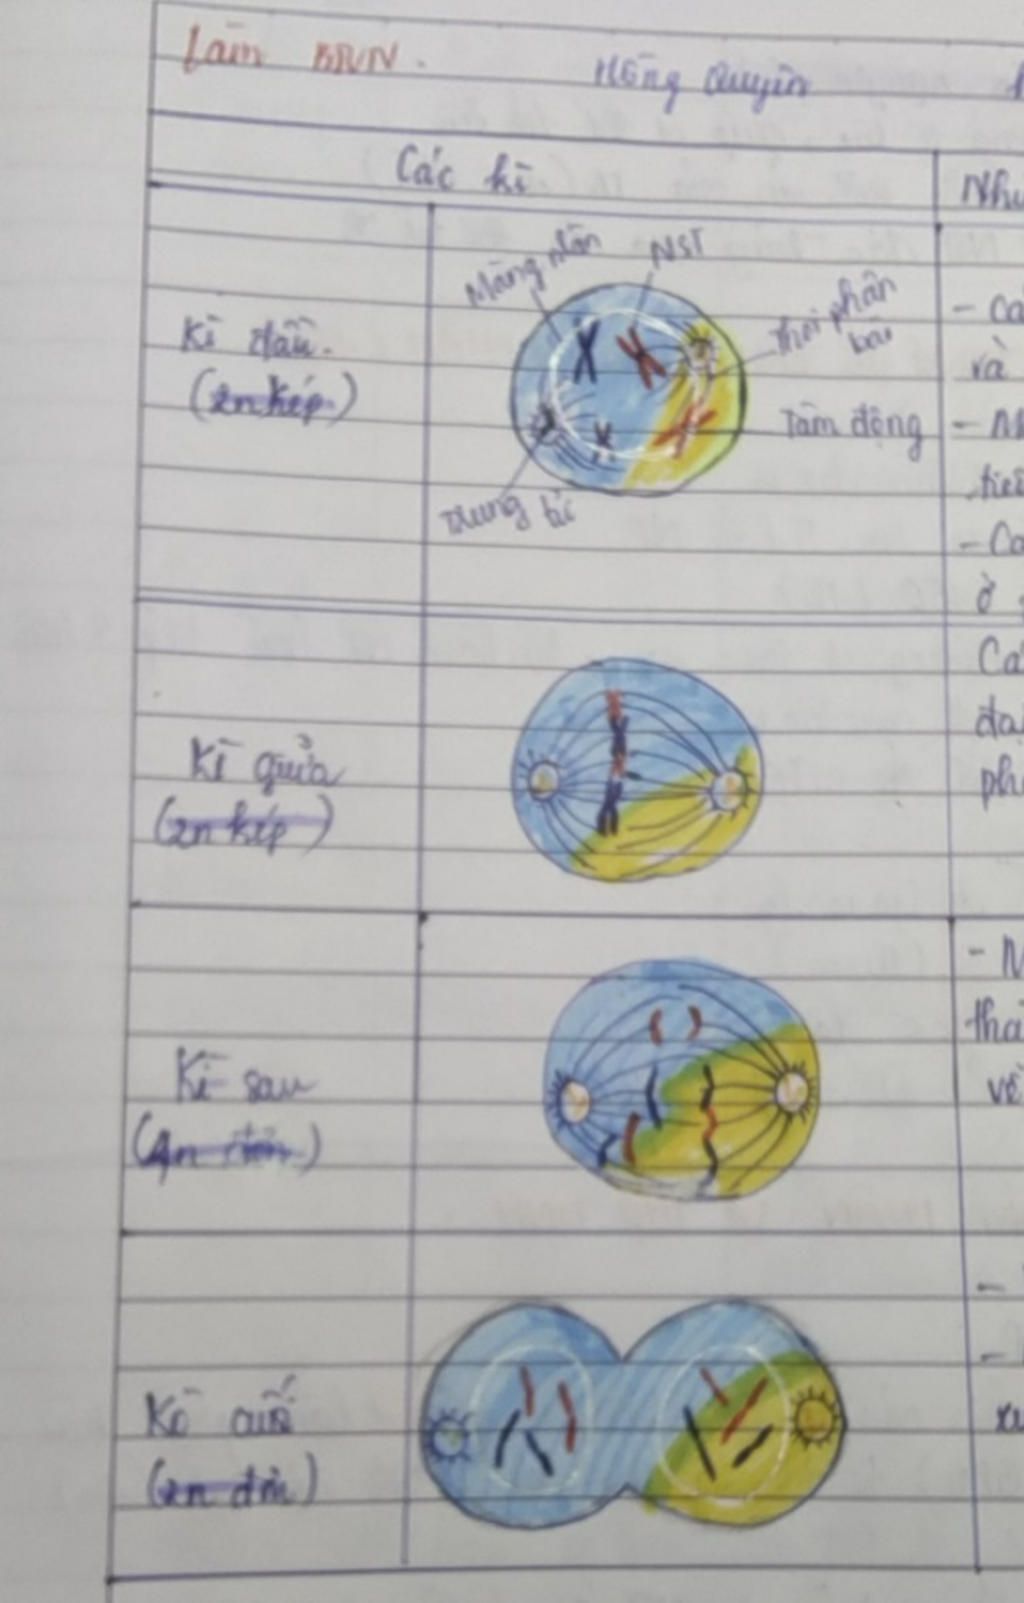 Làm BRVN.
Hồng Quyên
Các kì
Kì đầu.
(2n kép)
Màng nhân
NST
Thoi phân
bào
Tâm động
Trung tử
- Cá
và
- M
tiê
- Co
ở
Kì giữa
(2n kép)
Cá
đa
ph
Kì sau
(4n đơn)
- N
thà
về
Kì cuối
(2n đơn)
-
-